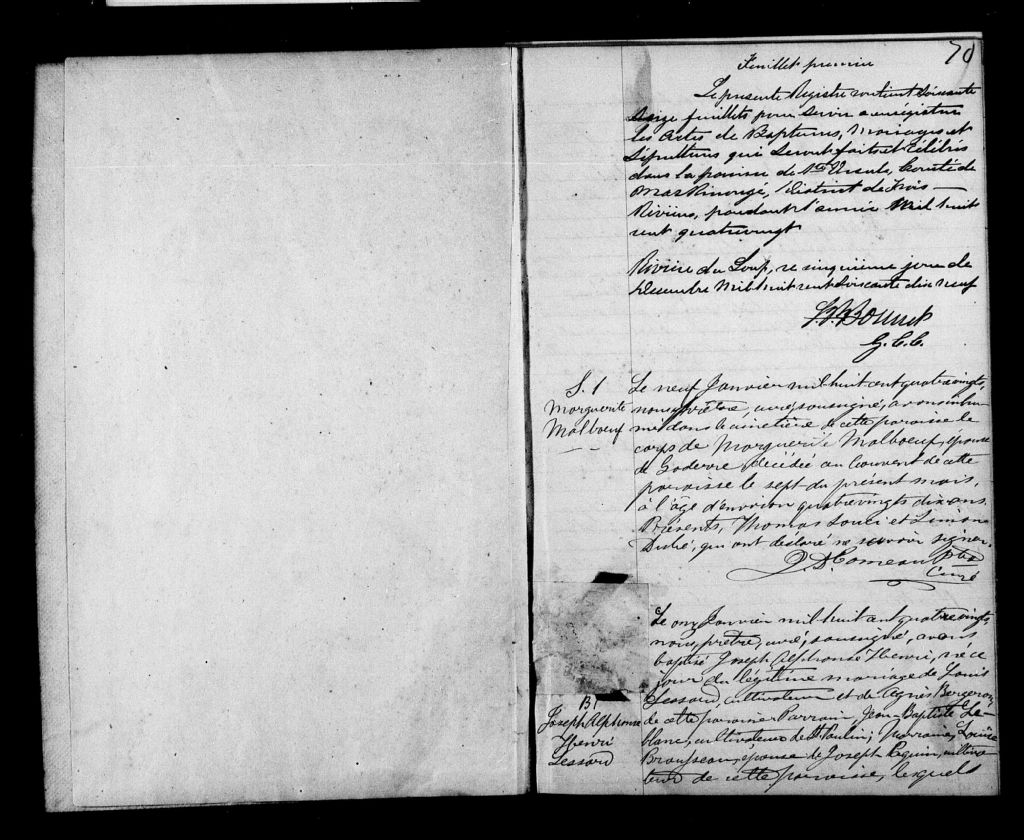 70
Feuillet premier
Le présente Registre contient Soixante
seize feuillets pour servir a enrégistrer
les Actes de Baptemes, Mariages et
Sépultures qui seront faits et Célébrés
dans la paroisse de Ste Ursule, Comté de
Maskinongé, District de Trois-
Rivières, pendant l'année Mil huit
cent quatrevingt
Rivière du Loup, ce cinquième jour de
Décembre Mil huit cent Soixante dix neuf
G. C. C.
S. 1
Marguerite
Malboeuf
Le neuf Janvier mil huit cent quatrevingts,
nous, prêtre, curé, soussigné, avons inhu-
mé dans le cimetière de cette paroisse le
corps de Marguerite Malboeuf, épouse
de décédée au Couvent de cette
paroisse le sept du présent mois,
à l'âge d'environ quatrevingts dix ans.
Présents, Thomas et
qui ont déclaré ne savoir signer.
Comeau Ptre
Curé
B1
Joseph Alphonse
Henri
Lessard
Le onze Janvier mil huit cent quatrevingts,
nous, prêtre, curé, soussigné, avons
baptisé Joseph Alphonse Henri, né ce
jour du légitime mariage de Louis
Lessard, cultivateur et de Agnès Bergeron,
de cette paroisse Parrain, Jean-Baptiste Le-
blanc, cultivateur de St Paulin; Marraine, Louise
épouse de Joseph cultiva-
teur de cette paroisse, lesquels